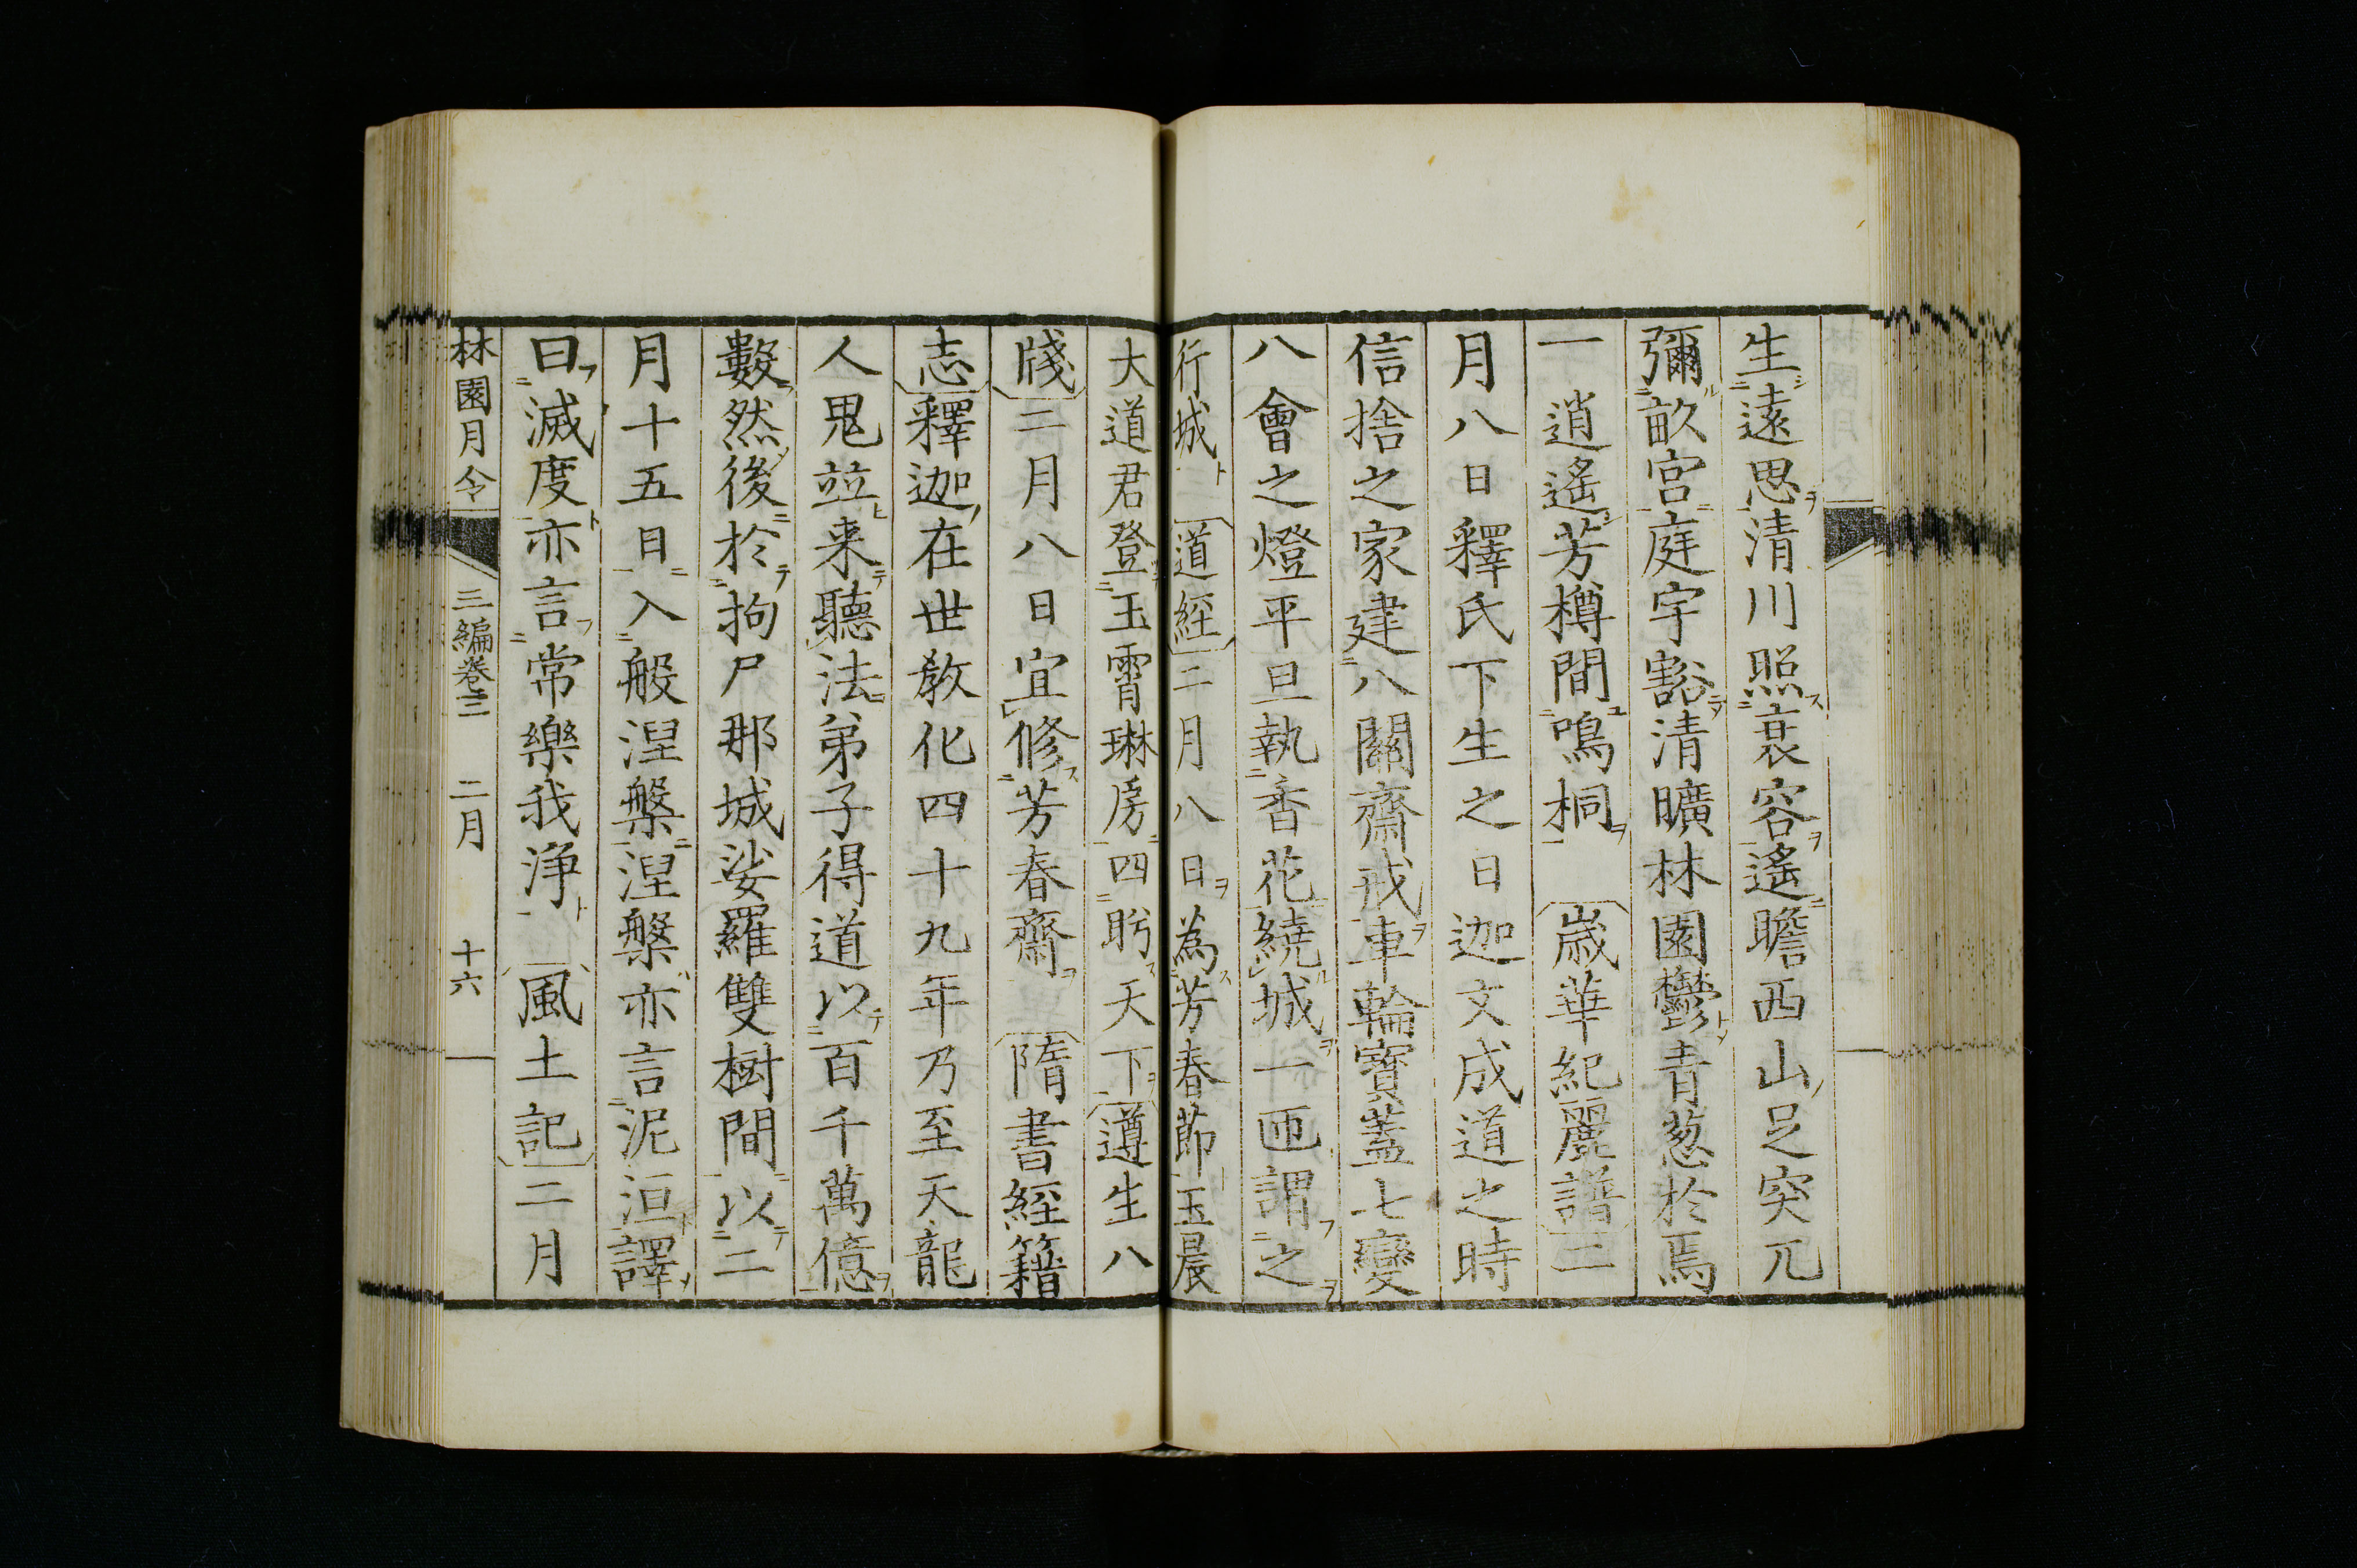 生遠思清川照衰容遙瞻西山足突兀
彌畝宮庭宇豁清曠林園鬱青葱於焉
一逍遙芳樽間鳴桐 歳華紀麗譜二
月八日釋氏下生之日迦文成道之時
信捨之家建八關齋戒車輪寶蓋七變
八會之燈平旦執香花繞城一匝謂之
行城 道經二月八日為芳春節玉晨
大道君登玉霄琳房四盻天下遵生八
牋二月八日宜修芳春齋 隋書經籍
志釋迦在世教化四十九年乃至天龍
人鬼竝来聽法弟子得道以百千萬億
數然後於拘尸那城娑羅雙樹間以二
月十五日入般涅槃涅槃亦言泥洹譯
曰滅度亦言常樂我浄 風土記二月
林園月令 三編卷三 二月 十六